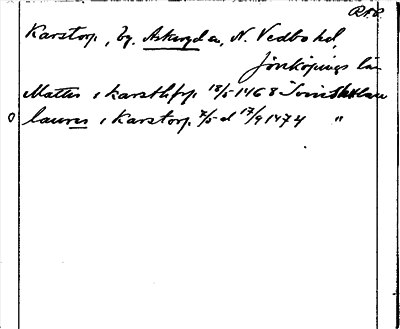 R.A.P.
Karstorp, by, Askeryd sn, N. Vedbo hd,
Jönköpings län
Mattes i karsthþp 18/5 1468
laures i Karstorp 7/5 d 17/9 1474 "